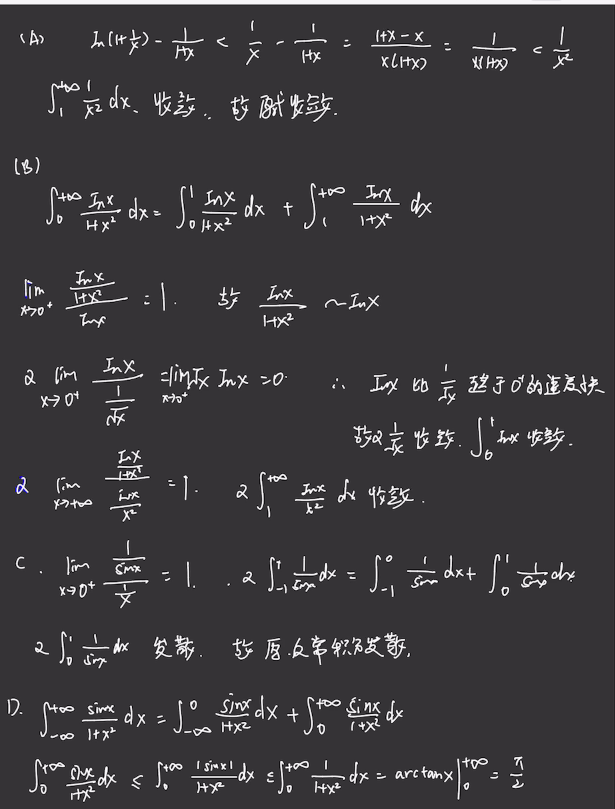 (A) ln(1+1/x) - 1/(1+x) < 1/x - 1/(1+x) = (1+x-x)/(x(1+x)) = 1/(x(1+x)) < 1/x²
∫₁^{+∞} 1/x² dx、收敛. 故 原式收敛.
(B)
∫₀^{+∞} lnx/(1+x²) dx = ∫₀¹ lnx/(1+x²) dx + ∫₁^{+∞} lnx/(1+x²) dx
lim_{x→0⁺} (lnx/(1+x²))/lnx = 1. 故 lnx/(1+x²) ~ lnx
又 lim_{x→0⁺} lnx/(1/√x) = lim_{x→0⁺} √x lnx = 0. ∴ lnx 比 1/√x 趋于0⁺的速度快
故又 1/√x 收敛. ∫₀¹ lnx 收敛.
又 lim_{x→+∞} (lnx/(1+x²))/(lnx/x²) = 1. 又 ∫₁^{+∞} lnx/x² dx 收敛.
C. lim_{x→0⁺} (1/sinx)/(1/x) = 1. . 又 ∫₋₁¹ 1/sinx dx = ∫₋₁⁰ 1/sinx dx + ∫₀¹ 1/sinx dx
又 ∫₀¹ 1/sinx dx 发散. 故 原反常积分发散.
D. ∫_{-∞}^{+∞} sinx/(1+x²) dx = ∫_{-∞}^0 sinx/(1+x²) dx + ∫₀^{+∞} sinx/(1+x²) dx
∫₀^{+∞} sinx/(1+x²) dx ≤ ∫₀^{+∞} |sinx|/(1+x²) dx ≤ ∫₀^{+∞} 1/(1+x²) dx = arctanx |₀^{+∞} = π/2